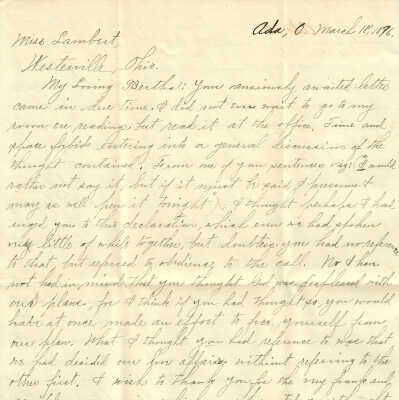 Ada, O. March 18, 1896.
Miss Lambert,
Westerville, Ohio.
My Loving Bertha: Your anxiously awaited letter
came in due time. I did not even wait to go to my
room ere reading, but read it at the office. Time and
space forbids entering into a general discussion of the
thought contained. From one of your sentences viz: "I would
rather not say it, but if it must be said, I presume I
may as well pen it tonight", I thought perhaps I had
urged you to this declaration, which even we had spoken
very little of while together, but doubtless you had no reference
to that, but referred to obedience to the call. No I have
not had in mind that you thought God was displeased with
our plans, for I think if you had thought so, you would
have at once made an effort to free yourself from
our plan. What I thought you had reference to was that
we had decided our affairs without referring to the
other first. I wish to thank you for the very frank and